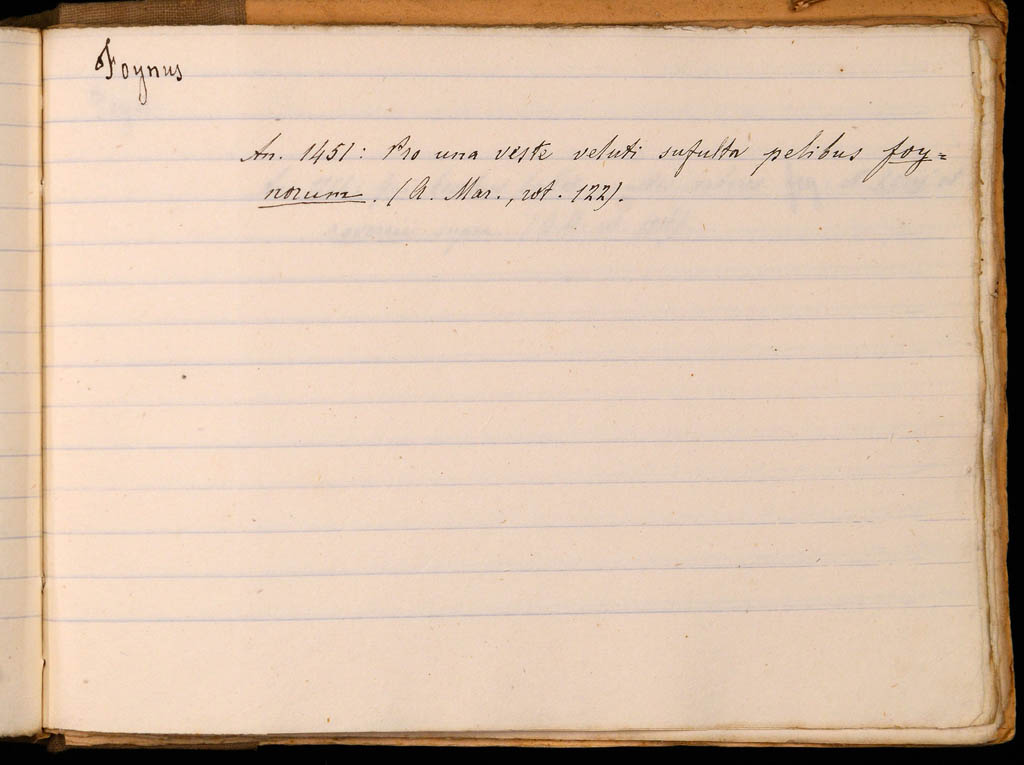 Foynus
An. 1451: Pro una veste veluti sufulta pelibus foy=
norum. (A. Mar., rot. 122).